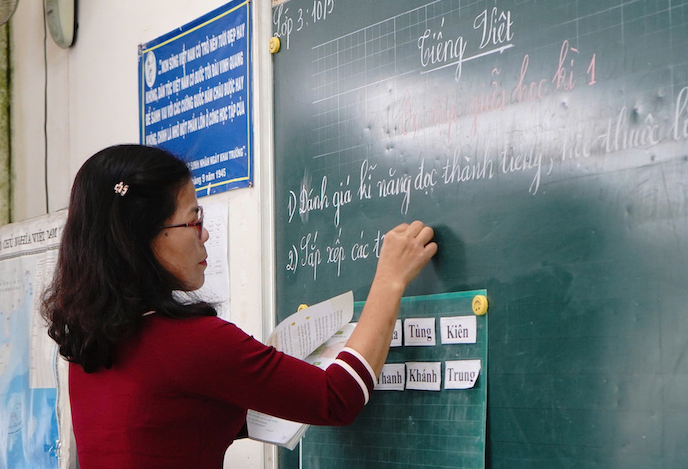 Lớp 3:
Tiếng Việt
giữa học kì 1
1) Đánh giá kĩ năng đọc thành tiếng,
2) Sắp xếp các
...NON SÔNG VIỆT NAM CÓ TRỞ NÊN TƯƠI ĐẸP HAY
KHÔNG, DÂN TỘC VIỆT NAM CÓ BƯỚC TỚI ĐÀI VINH QUANG
ĐỂ SÁNH VAI VỚI CÁC CƯỜNG QUỐC NĂM CHÂU ĐƯỢC HAY
KHÔNG, CHÍNH LÀ NHỜ MỘT PHẦN LỚN Ở CÔNG HỌC TẬP CỦA
SINH NHÂN NGÀY KHAI TRƯỜNG
9 năm 1945
CHỦ NGHĨA VIỆT NAM
Tùng Kiên
Thanh Khánh Trung